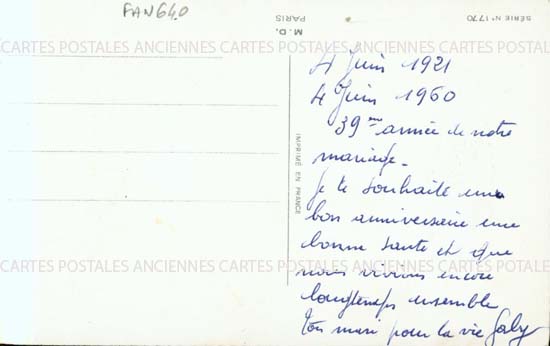 FAN640
M. D.
PARIS
SÉRIE N° 1770
IMPRIMÉ EN FRANCE
4 Juin 1921
4 Juin 1960
39ème année de notre
mariage.
Je te souhaite un
bon anniversaire une
bonne santé et que
nous vivions encore
longtemps ensemble
Ton mari pour la vie Gaby
CARTES POSTALES ANCIENNES CARTES POSTALES ANCIENNES CARTES POSTALES
CARTES POSTALES ANCIENNES CARTES POSTALES ANCIENNES CARTES POSTALES